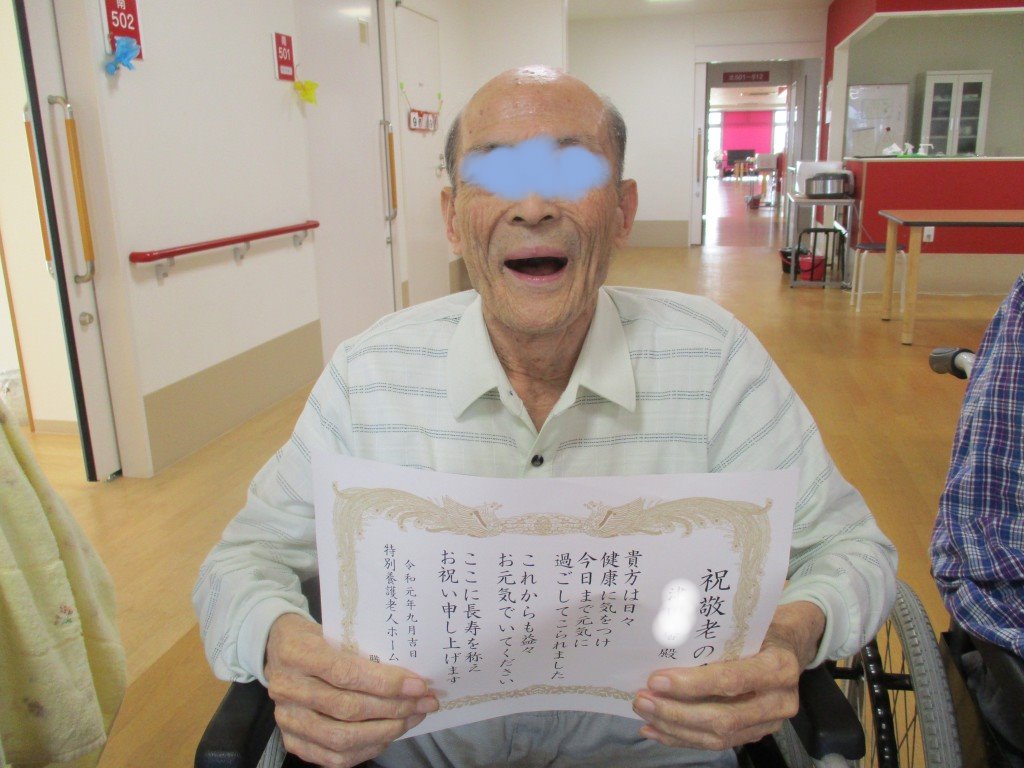 祝敬老の
殿
貴方は日々
健康に気をつけ
今日まで元気に
過ごしてこられました
これからも益々
お元気でいてください
ここに長寿を称え
お祝い申し上げます
令和元年九月吉日
特別養護老人ホーム
南
502
南
501